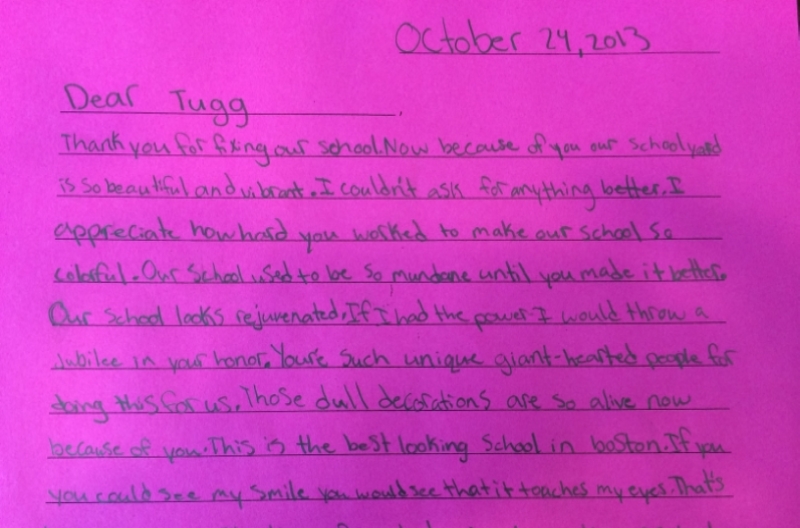 October 24, 2013
Dear Tugg,
Thank you for fixing our school. Now because of you our schoolyard
is so beautiful and vibrant. I couldn't ask for anything better. I
appreciate how hard you worked to make our school so
colorful. Our school used to be so mundane until you made it better.
Our school looks rejuvenated. If I had the power I would throw a
Jubilee in your honor. You're such unique giant-hearted people for
doing this for us. Those dull decorations are so alive now
because of you. This is the best looking school in boston. If you
you could see my smile you would see that it touches my eyes. That's